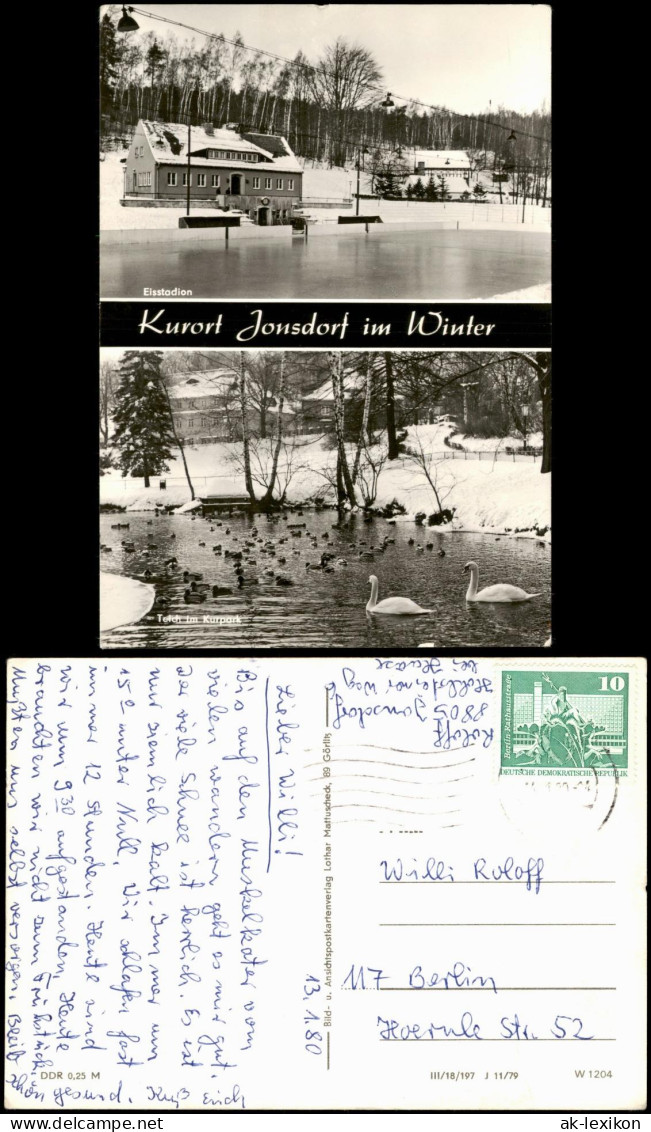 Eisstadion
Kurort Jonsdorf im Winter
Teich im Kurpark
Roloff
8805 Jonsdorf
bei Haase
10
Berlin-Rathausstraße
DEUTSCHE DEMOKRATISCHE REPUBLIK
Lieber Willi!
Bis auf den Muskelkater vom
vielen wandern geht es mir gut.
Der viele Schnee ist herrlich. Es ist
nur ziemlich kalt. Immer um
15° unter Null. Wir schlafen fast
immer 12 Stunden. Heute sind
wir um 9³⁰ aufgestanden. Heute
brauchten wir nicht zum Frühstück.
Mußten uns selbst versorgen. Bleib
schön gesund. Kuß Erich
13.1.80
Bild- u. Ansichtspostkartenverlag Lothar Mattuscheck, 89 Görlitz
Willi Roloff
117 Berlin
Hoernle Str. 52
DDR 0,25 M
III/18/197 J 11/79
W 1204
© ak-lexikon.de
ak-lexikon.com